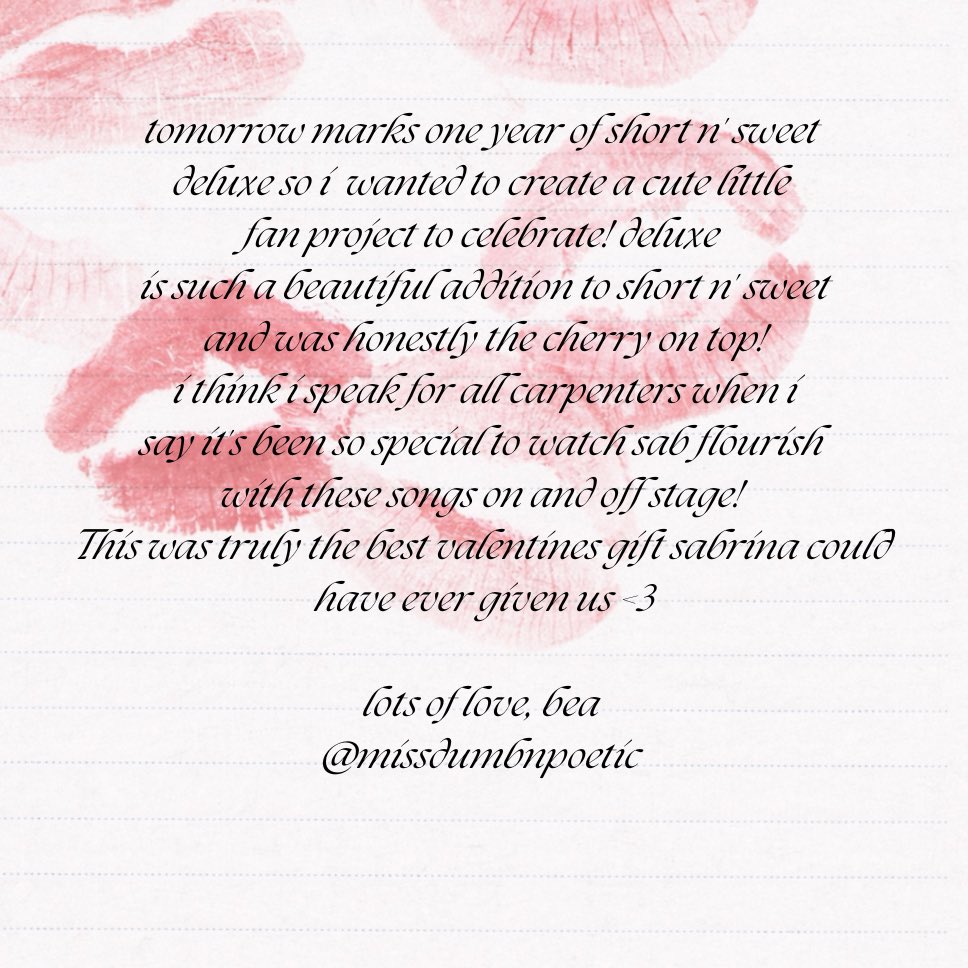 tomorrow marks one year of short n' sweet
deluxe so i wanted to create a cute little
fan project to celebrate! deluxe
is such a beautiful addition to short n' sweet
and was honestly the cherry on top!
i think i speak for all carpenters when i
say it's been so special to watch sab flourish
with these songs on and off stage!
This was truly the best valentines gift sabrina could
have ever given us <3
lots of love, bea
@missdumbnpoetic